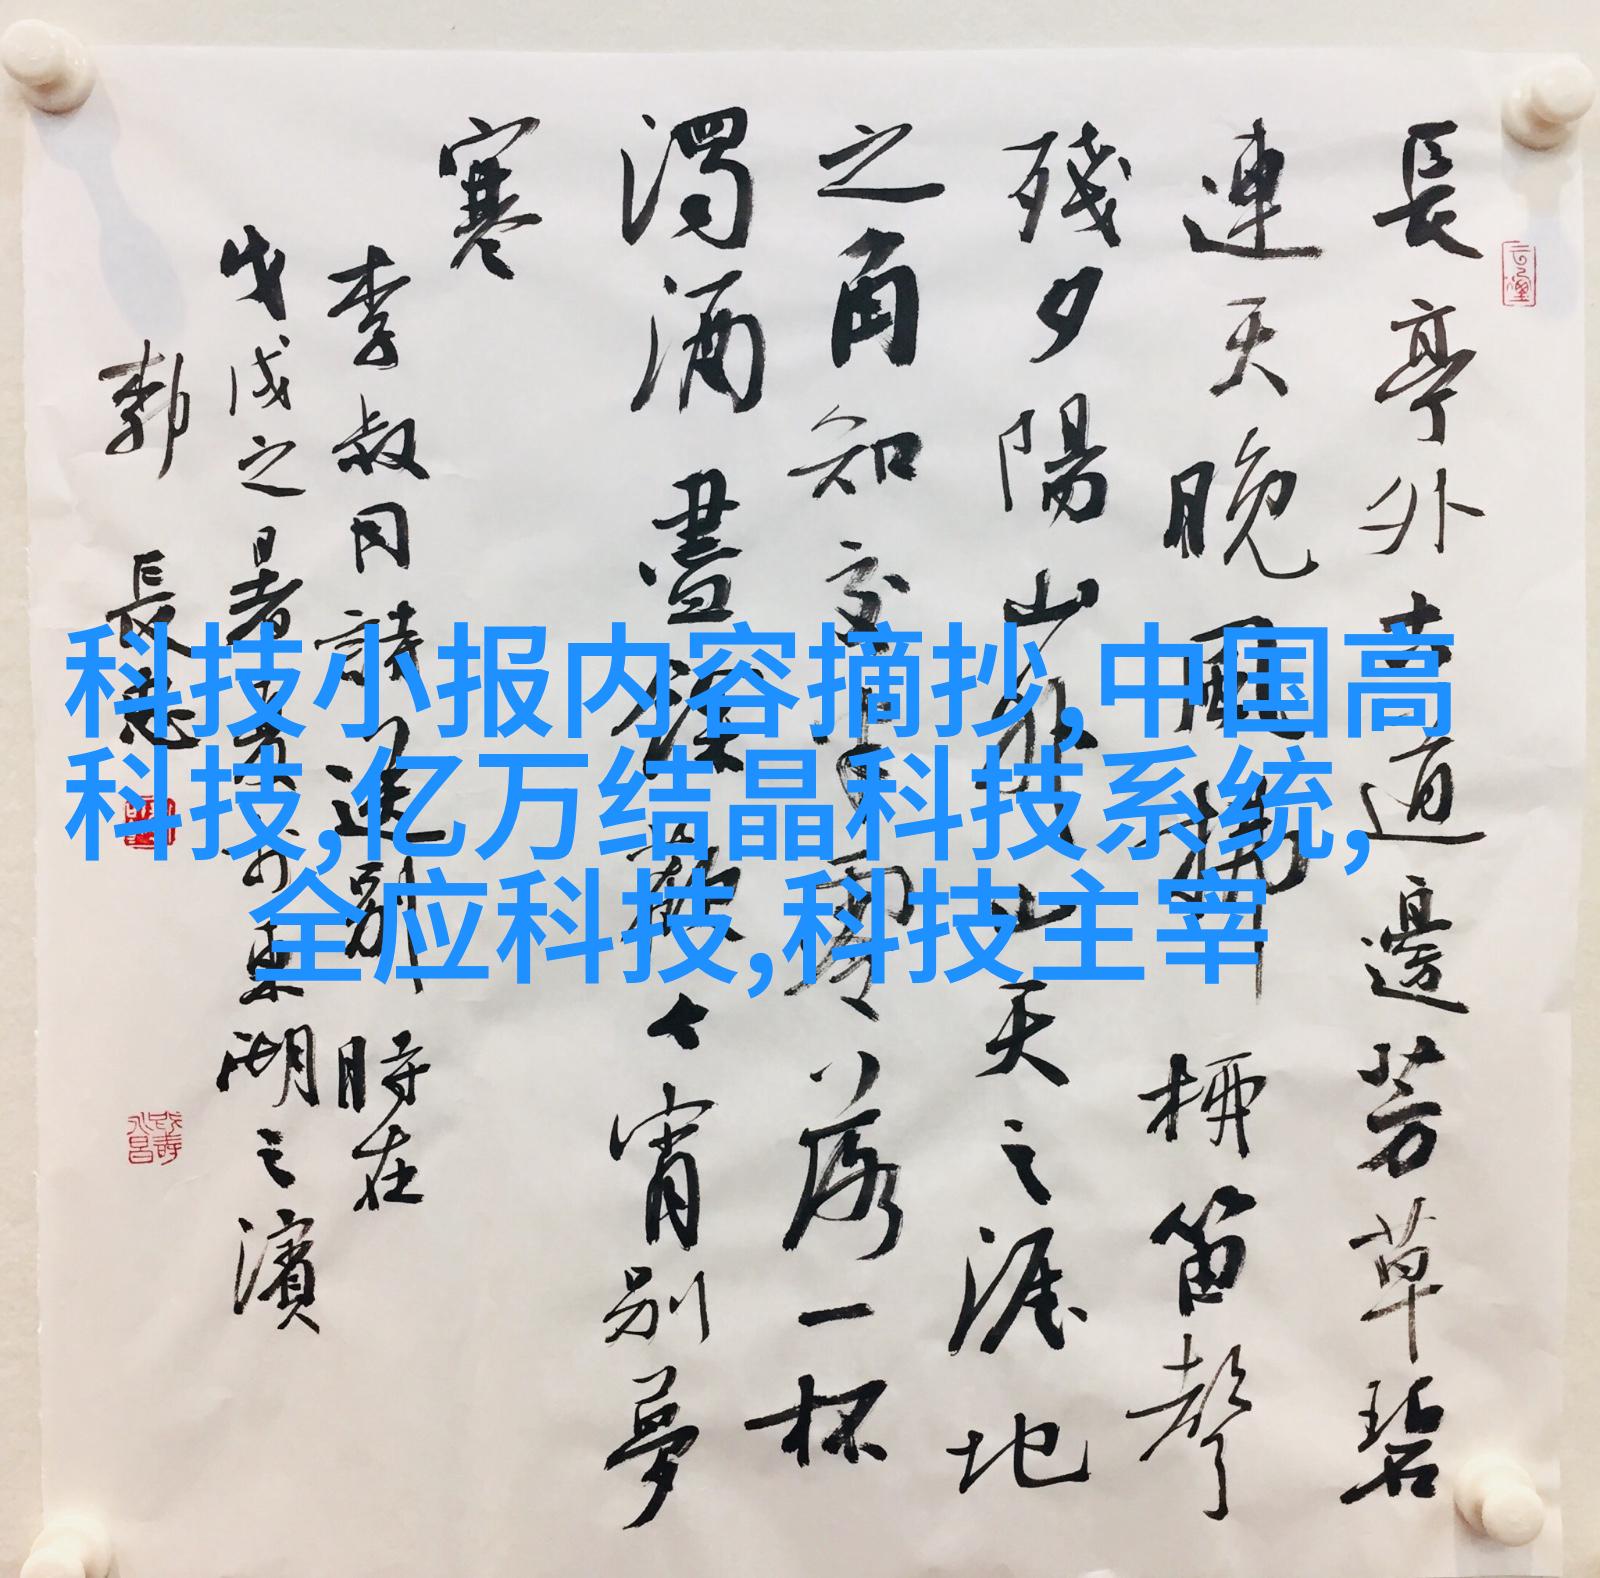 長亭外古道邊芳草碧
連天晚風拂柳笛聲
殘夕陽山外山天之涯地
之角知交半零落一杯
濁酒盡餘歡今宵別夢
寒
李叔同詩送別 時在
戊戌之
東湖之濱
長志
科技小报内容摘抄,中国高
科技,亿万结晶科技系统,
全应科技,科技主宰